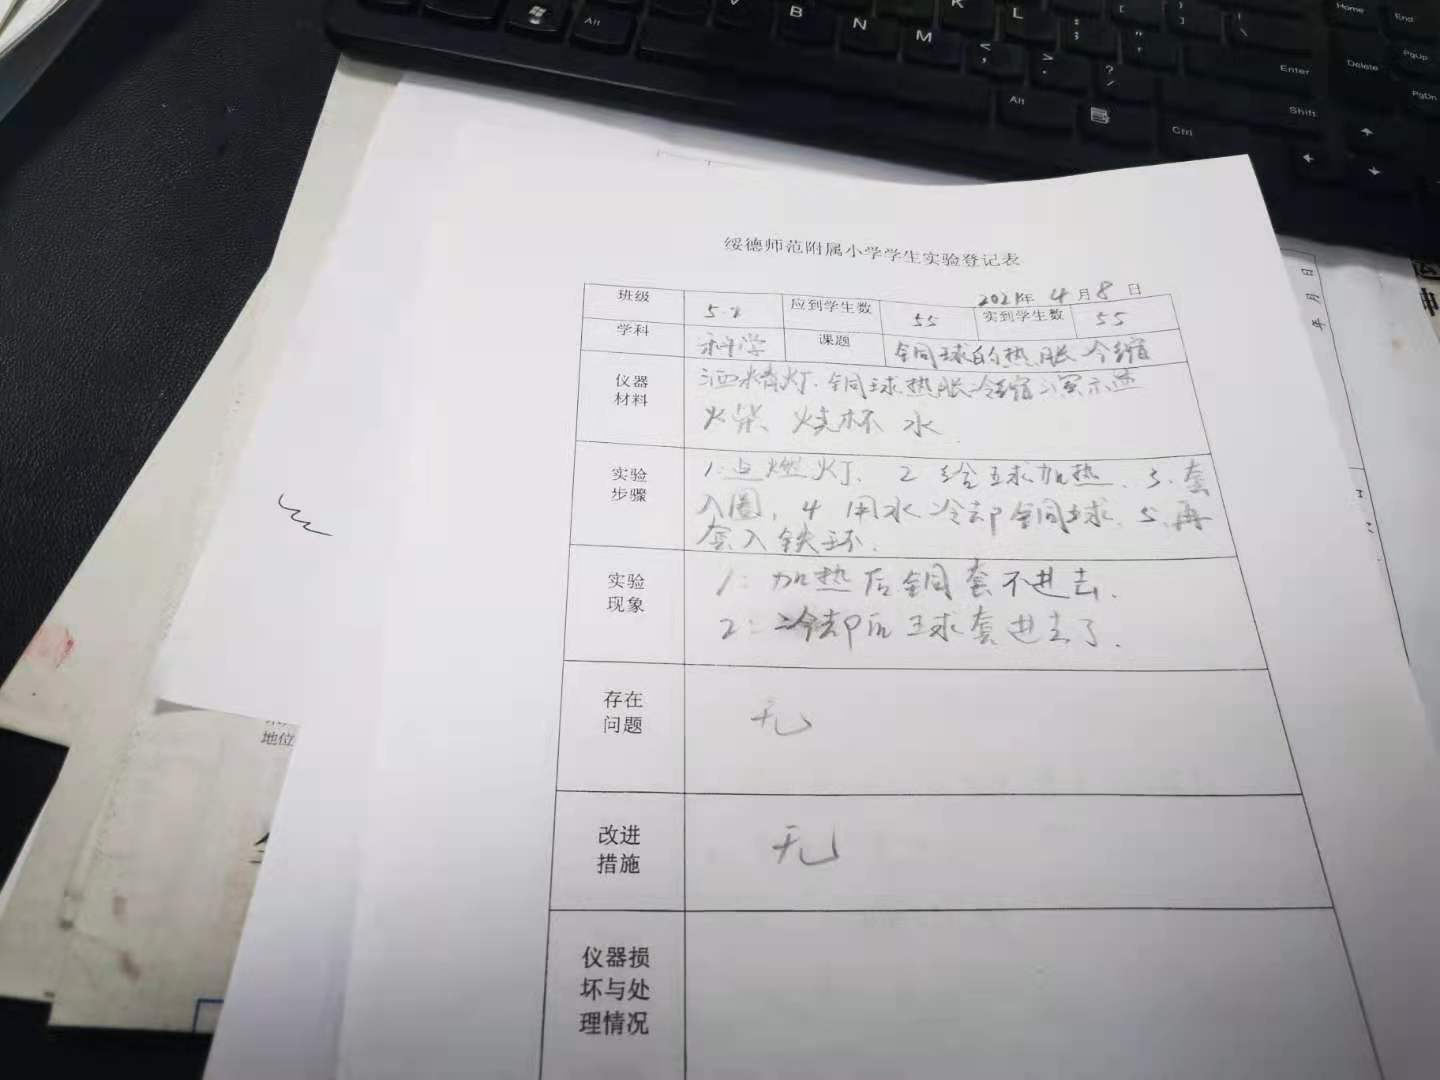 Alt
V
B
N
M
K
L
<
,
>
.
:
;
"
'
?
/
{
[
}
]
|
\
Alt
Ctrl
Enter
Shift
Home
End
Delete
PgUp
PgDn
绥德师范附属小学学生实验登记表
2021年 4月8日
班级 5.2 应到学生数 55 实到学生数 55
学科 科学 课题 铜球的热胀冷缩
仪器
材料
酒精灯.铜球热胀冷缩演示器
火柴 烧杯 水
实验
步骤
1.点燃灯、2给球加热、3.套
入圈,4用水冷却铜球、5.再
套入铁环.
实验
现象
1:加热后铜套不进去.
2:冷却后球套进去了.
存在
问题
无
改进
措施
无
仪器损
坏与处
理情况
地位
年 月 日